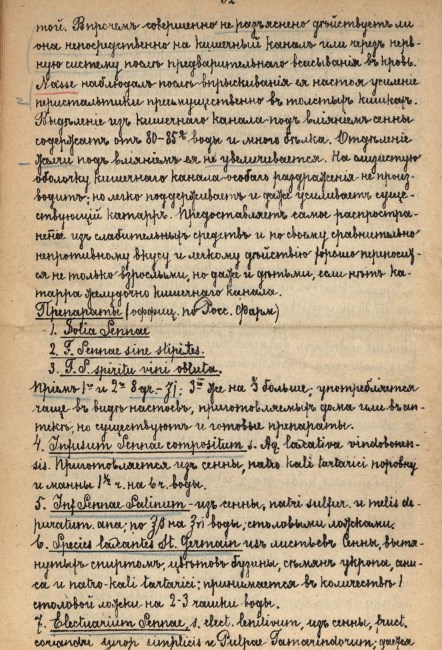 той. Впрочемъ совершенно не разъяснено дѣйствуетъ ли
она непосредственно на кишечный каналъ или черезъ нерв-
ную систему послѣ предварительнаго всасыванія въ кровь.
Nasse наблюдалъ послѣ впрыскиванія ея настоя усиленіе
перистальтики преимущественно въ толстыхъ кишкахъ.
Выдѣленіе изъ кишечнаго канала подъ вліяніемъ сенны
содержатъ отъ 80-85% воды и много бѣлка. Отдѣленіе
желчи подъ вліяніемъ ея не увеличивается. На слизистую
оболочку кишечнаго канала особаго раздраженія не произ-
водитъ; но легко поддерживаетъ и даже усиливаетъ суще-
ствующій катарръ. Предоставляетъ самое распростра-
изъ слабительныхъ средствъ и по своему сравнительно
непротивному вкусу и легкому дѣйствію хорошо переносит-
ся не только взрослыми, но даже и дѣтьми, если нѣтъ ка-
тарра желудочно кишечнаго канала.
Препараты (оффиц. по Росс. Фарм)
1. Folia Sennae
2. F. Sennae sine stipites.
3. F. S. spiritu vini obluta.
Пріемъ 1го и 2го 8 gr.- же на больше; употребляется
чаще въ видѣ настоевъ, приготовляемыхъ дома или въ ап-
текѣ, но существуютъ и готовые препараты.
4. Infusum Sennae compositum s. Aq. laxativa vindobonen-
sis. Приготовляется изъ сенны, natro kali tartarici поровну
и манны 1½ ч. на 6 ч. воды.
5. Inf. Sennae Salinum - изъ сенны, natri sulfur. и melis de-
puratum. ana; по на воды; столовыми ложками.
6. Species laxantes St. Germain изъ листьевъ Сенны, вытя-
нутыхъ спиртомъ, цвѣтовъ бузины, сѣмянъ укропа, ани-
са и natro-kali tartarici; принимается въ количествѣ 1
столовой ложки на 2-3 чашки воды.
7. Electuarium Sennae, s. elect. lenitivum, изъ сенны, fruct.
coriandri syrop simplicis и Pulpae Tamarindorum; дается